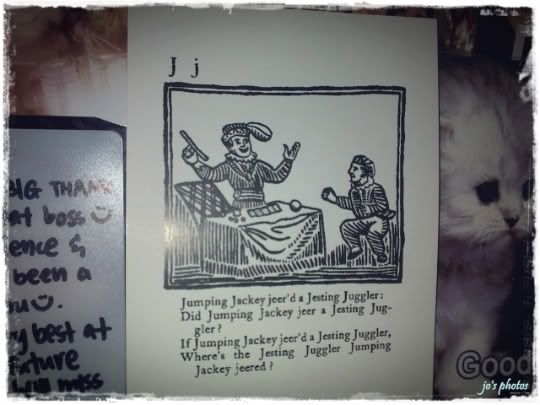 J j
Jumping Jackey jeer'd a Jesting Juggler:
Did Jumping Jackey jeer a Jesting Jug-
gler?
If Jumping Jackey jeer'd a Jesting Juggler,
Where's the Jesting Juggler Jumping
Jackey jeered?
BIG THANK
at boss
ence &
been a
u
best at
miss
Good
jo's photos